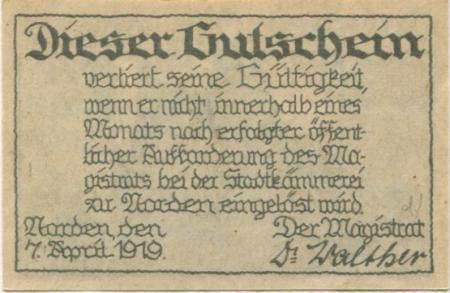 Dieser Gutschein
verliert seine Gültigkeit,
wenn er nicht innerhalb eines
Monats nach erfolgter öffent-
licher Aufforderung des Ma-
gistrats bei der Stadtkämmerei
zu Norden eingelöst wird.
Norden, den Der Magistrat
7. April 1919. Dr. Walther